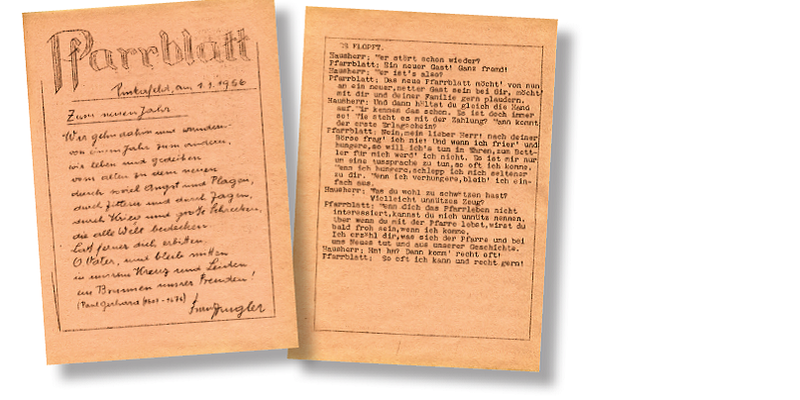 Pfarrblatt
Pinkafeld, am 1.1.1956
Zum neuen Jahr
Wir gehn dahin und wandern
von einem Jahr zum andern,
wir leben und gedeihen
vom alten zu dem neuen
durch soviel Angst und Plagen,
durch Zittern und durch Zagen,
durch Krieg und große Schrecken,
die alle Welt bedecken.
O Vater, und bleib mitten
in unserm Kreuz und Leiden
ein Brunnen unsrer Freuden!
(Paul Gerhard
'S KLOPFT.
Hausherr: Wer stört schon wieder?
Pfarrblatt: Ein neuer Gast! Ganz fremd!
Hausherr: Wer ist's also?
Pfarrblatt: Das neue Pfarrblatt möcht' von nun
an ein neuer,netter Gast sein bei dir, möcht'
mit dir und deiner Familie gern plaudern.
Hausherr: Und dann hältst du gleich die Hand
auf. Wir kennen das schon. Es ist doch immer
so! Wie steht es mit der Zahlung? Wann kommt
der erste Erlagschein?
Pfarrblatt: Nein,mein lieber Herr! nach deiner
Börse frag' ich nie! Und wenn ich frier' und
hungere,so will ich's tun in Ehren,zum Bett-
ler für mich werd' ich nicht. Es ist mir nur
um eine Aussprache zu tun,so oft ich komme.
Wenn ich hungere,schlepp ich mich seltener
zu dir. Wenn ich verhungere,bleib' ich ein-
fach aus.
Hausherr: Was du wohl zu schwätzen hast?
Vielleicht unnützes Zeug?
Pfarrblatt: Wenn dich das Pfarrleben nicht
interessiert,kannst du mich unnütz nennen.
Aber wenn du mit der Pfarre lebst,wirst du
bald froh sein,wenn ich komme.
Ich erzähl dir,was sich der Pfarre und bei
uns Neues tut und aus unserer Geschichte.
Hausherr: Hm! Hm? Dann komm' recht oft!
Pfarrblatt: So oft ich kann und recht gern!